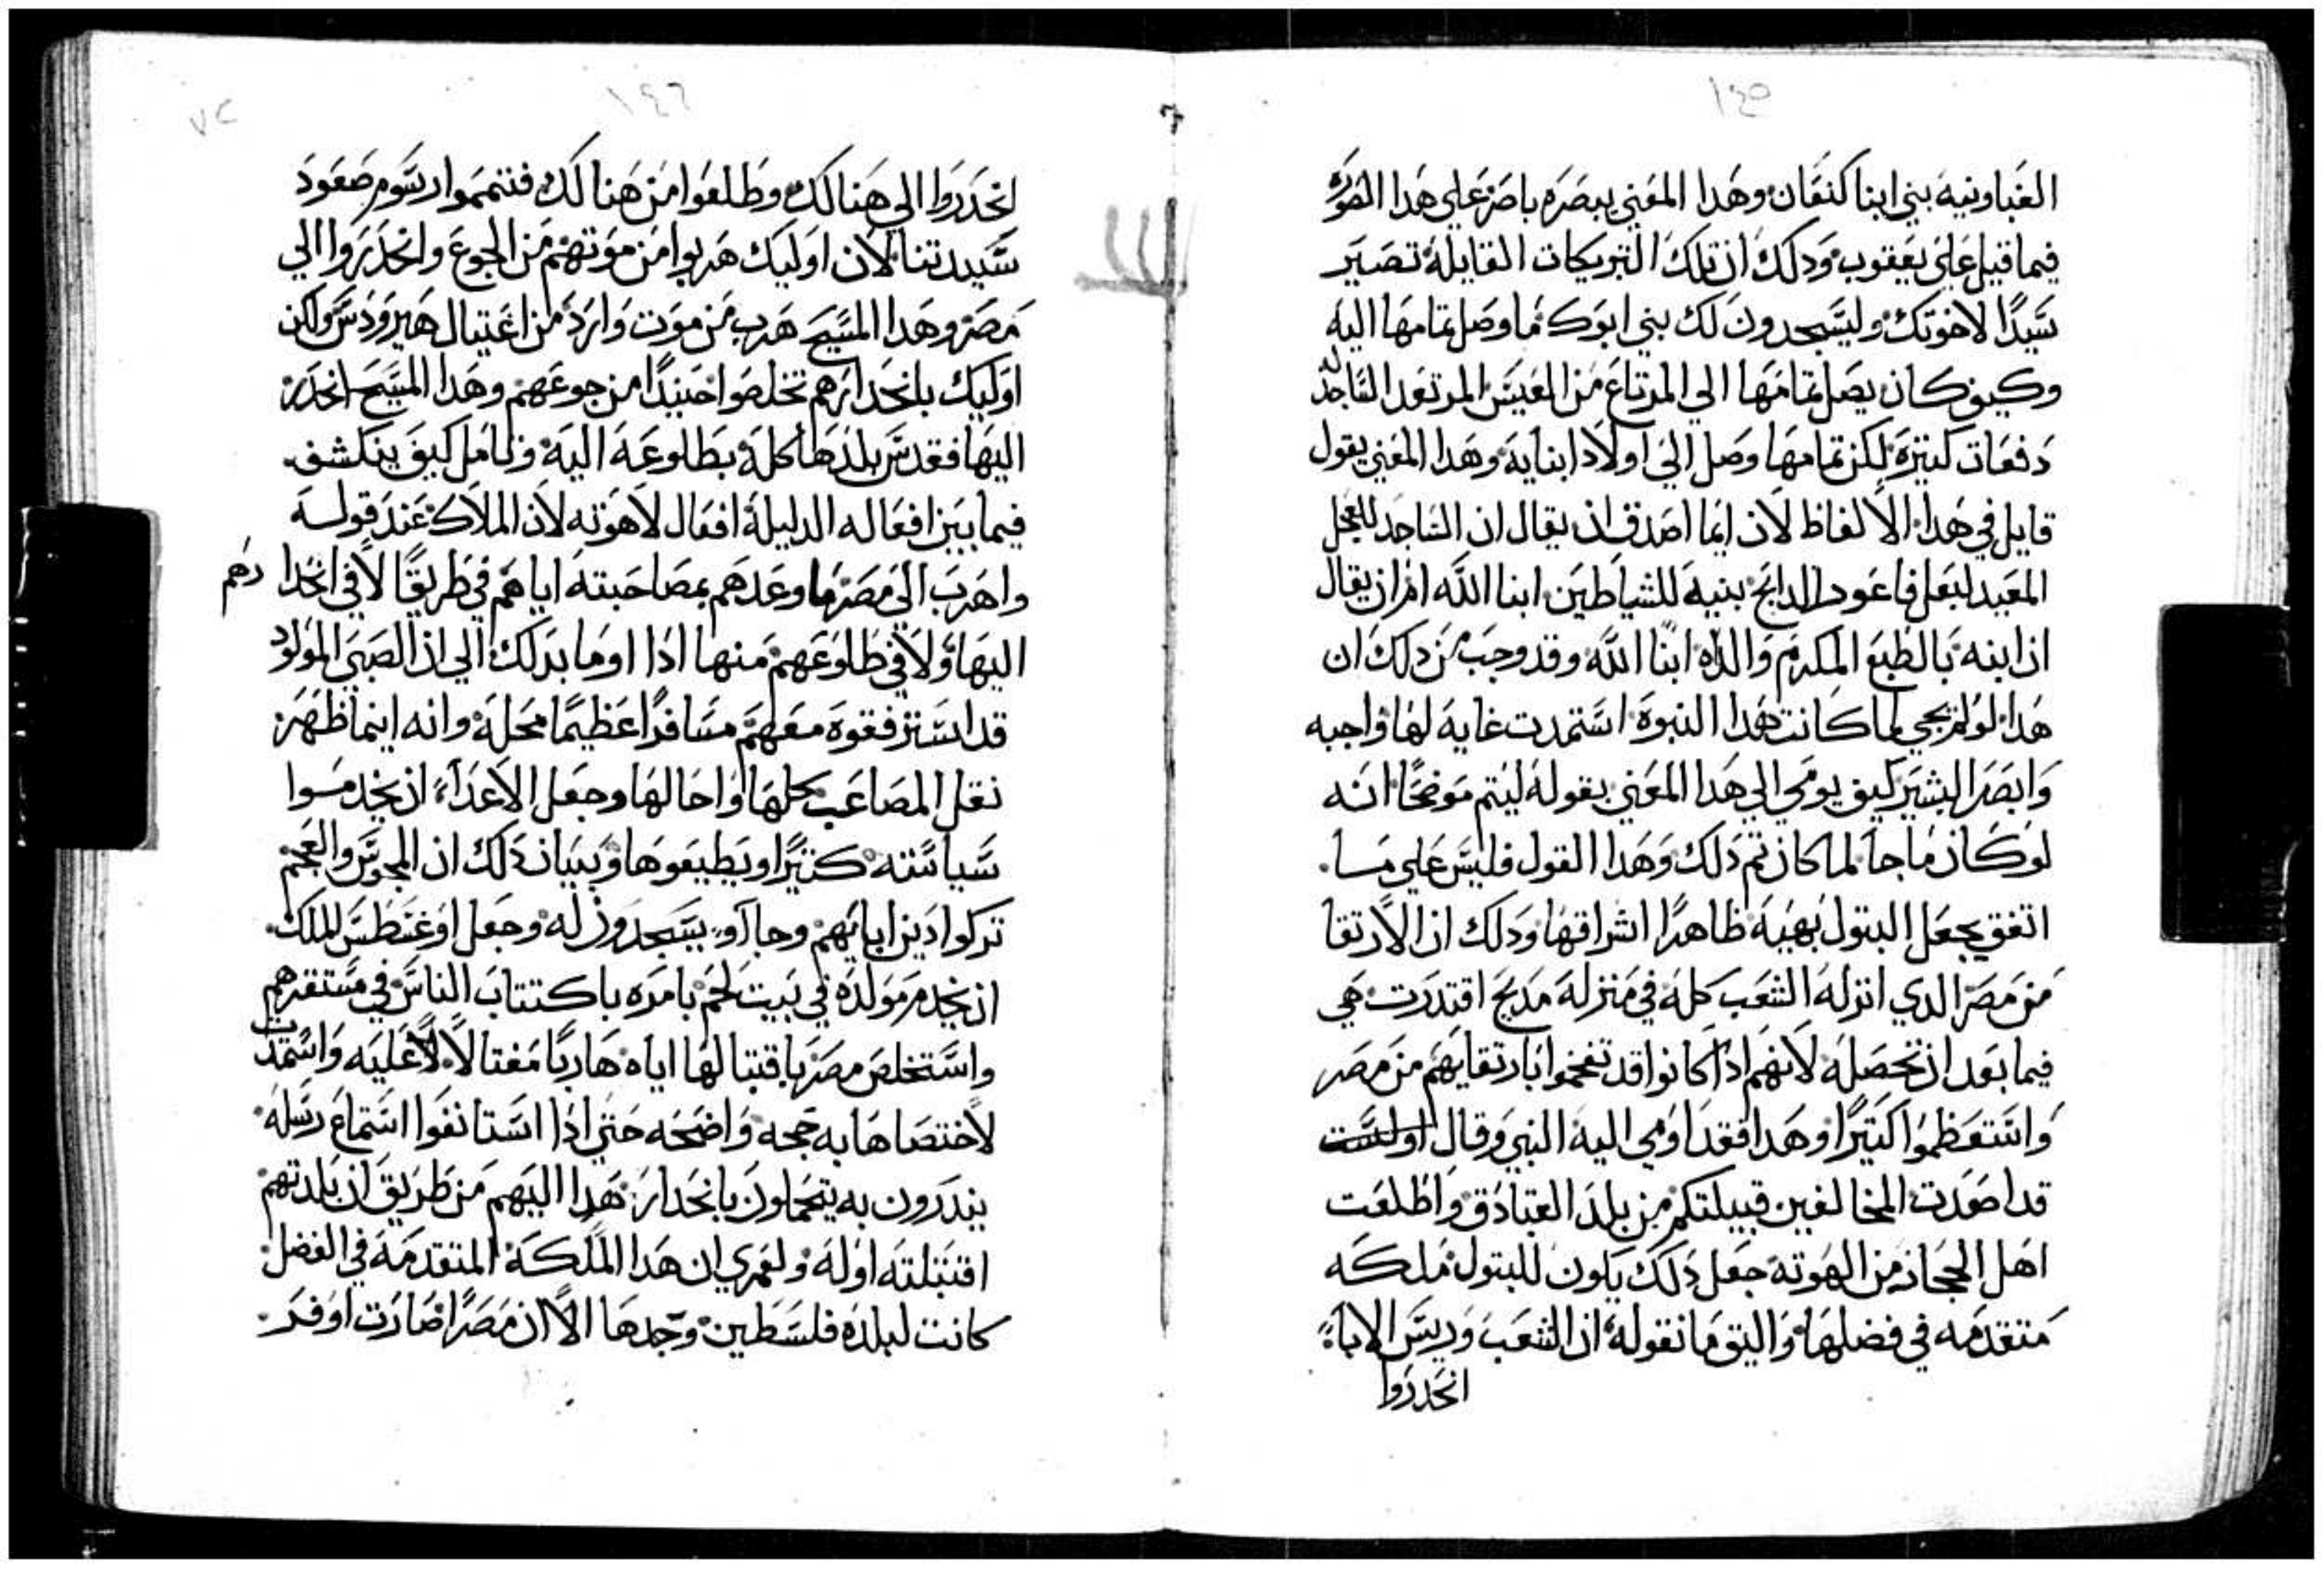 ١٤٥
الغباونيه بني ابنا كنعان وهدا المعني يبصره باصر علي هدا الصوره
فيما قيل علي يعقوب ودلك ان تلك التبريكات القايله تصير
سيدًا لاخوتك وليسجدون لك بني ابوك ما وصل تمامها اليه
وكيف كان يصل تمامها الي المرتاع من العيس المرتعد الساجد له
دفعات كثيرة لكن تمامها وصل الي اولاد ابنايه وهدا المعني يقول
قايل في هدا الالفاظ لان ايما اصدق ان يقال ان الساجد للعجل
المعيد لبعل فاعور الدابح بنيه للشياطين ابنا الله ام ان يقال
ان ابنه بالطبع المكرم والده ابنا الله وقد وجب من دلك ان
هدا لو لم يجي لما كانت هدا النبوة استمدت غاية لها واجبه
وابصر البشير كيف يومي الي هدا المعني بقوله ليتم موضحًا انه
لو كان ما جا لما كان تم دلك وهدا القول فليس علي ما
اتفق يجعل البتول بهية ظاهرًا اشراقها ودلك ان الارتقا
من مصر الدي انزله الشعب كله في منزلة مديح اقتدرت هي
فيما بعد ان تحصله لانهم ادا كانوا قد تفخموا بارتقايهم من مصر
واستعظموا كثيرًا وهدا فقد اومي اليه النبي وقال اولست
قد اصعدت المخالفين قبيلتكم من بلد القبادق واطلعت
اهل الججاز من الهوته جعل دلك يكون للبتول ملكه
متقدمه في فضلها واليق ما نقوله ان الشعب وريس الاباء
انحدروا
١٤٦
٧٢
انحدروا الي هنالك وطلعوا من هنالك فتتمموا رسوم صعود
سيدتنا لان اوليك هربوا من موتهم من الجوع وانحدروا الي
مصر وهدا المسيح هرب من موت وارد من اغتيال هيرودس ولكن
اوليك بانحدارهم تخلصوا حينيدًا من جوعهم وهدا المسيح انحدر
اليها فقدس بلدها كله بطلوعه اليه وتامل كيف ينكشف
فيما بين افعاله الدليلة افعال لاهوته لان الملاك عند قوله
واهرب الي مصر ما وعدهم بمصاحبته اياهم في طريقًا لا في انحدارهم
اليها ولا في طلوعهم منها ادا اوما بدلك الي ان الصبي المولود
قد استرفقوه معهم مسافرًا عظيمًا محله وانه اينما ظهر
نقل المصاعب كلها واحالها وجعل الاعداء ان يخدموا
سياسته كثيرًا ويطيعوها وبيان دلك ان المجوس والعجم
تركوا دين ابايهم وجاآو يسجدون له وجعل اوغسطس الملك
ان يخدم مولده في بيت لحم بامره باكتتاب الناس في مستقرهم
واستخلص مصر باقتبالها اياه هاربًا مغتالا عليه واستمدت
لاختصاصها به حجه واضحه حتي ادا استانفوا استماع رسله
يندرون به يتجملون بانحدار هدا اليهم من طريق ان بلدتهم
اقتبلته اوله ولعمري ان هدا الملكة المتقدمة في الفضل
كانت لبلده فلسطين وحدها الا ان مصر صارت اوفد